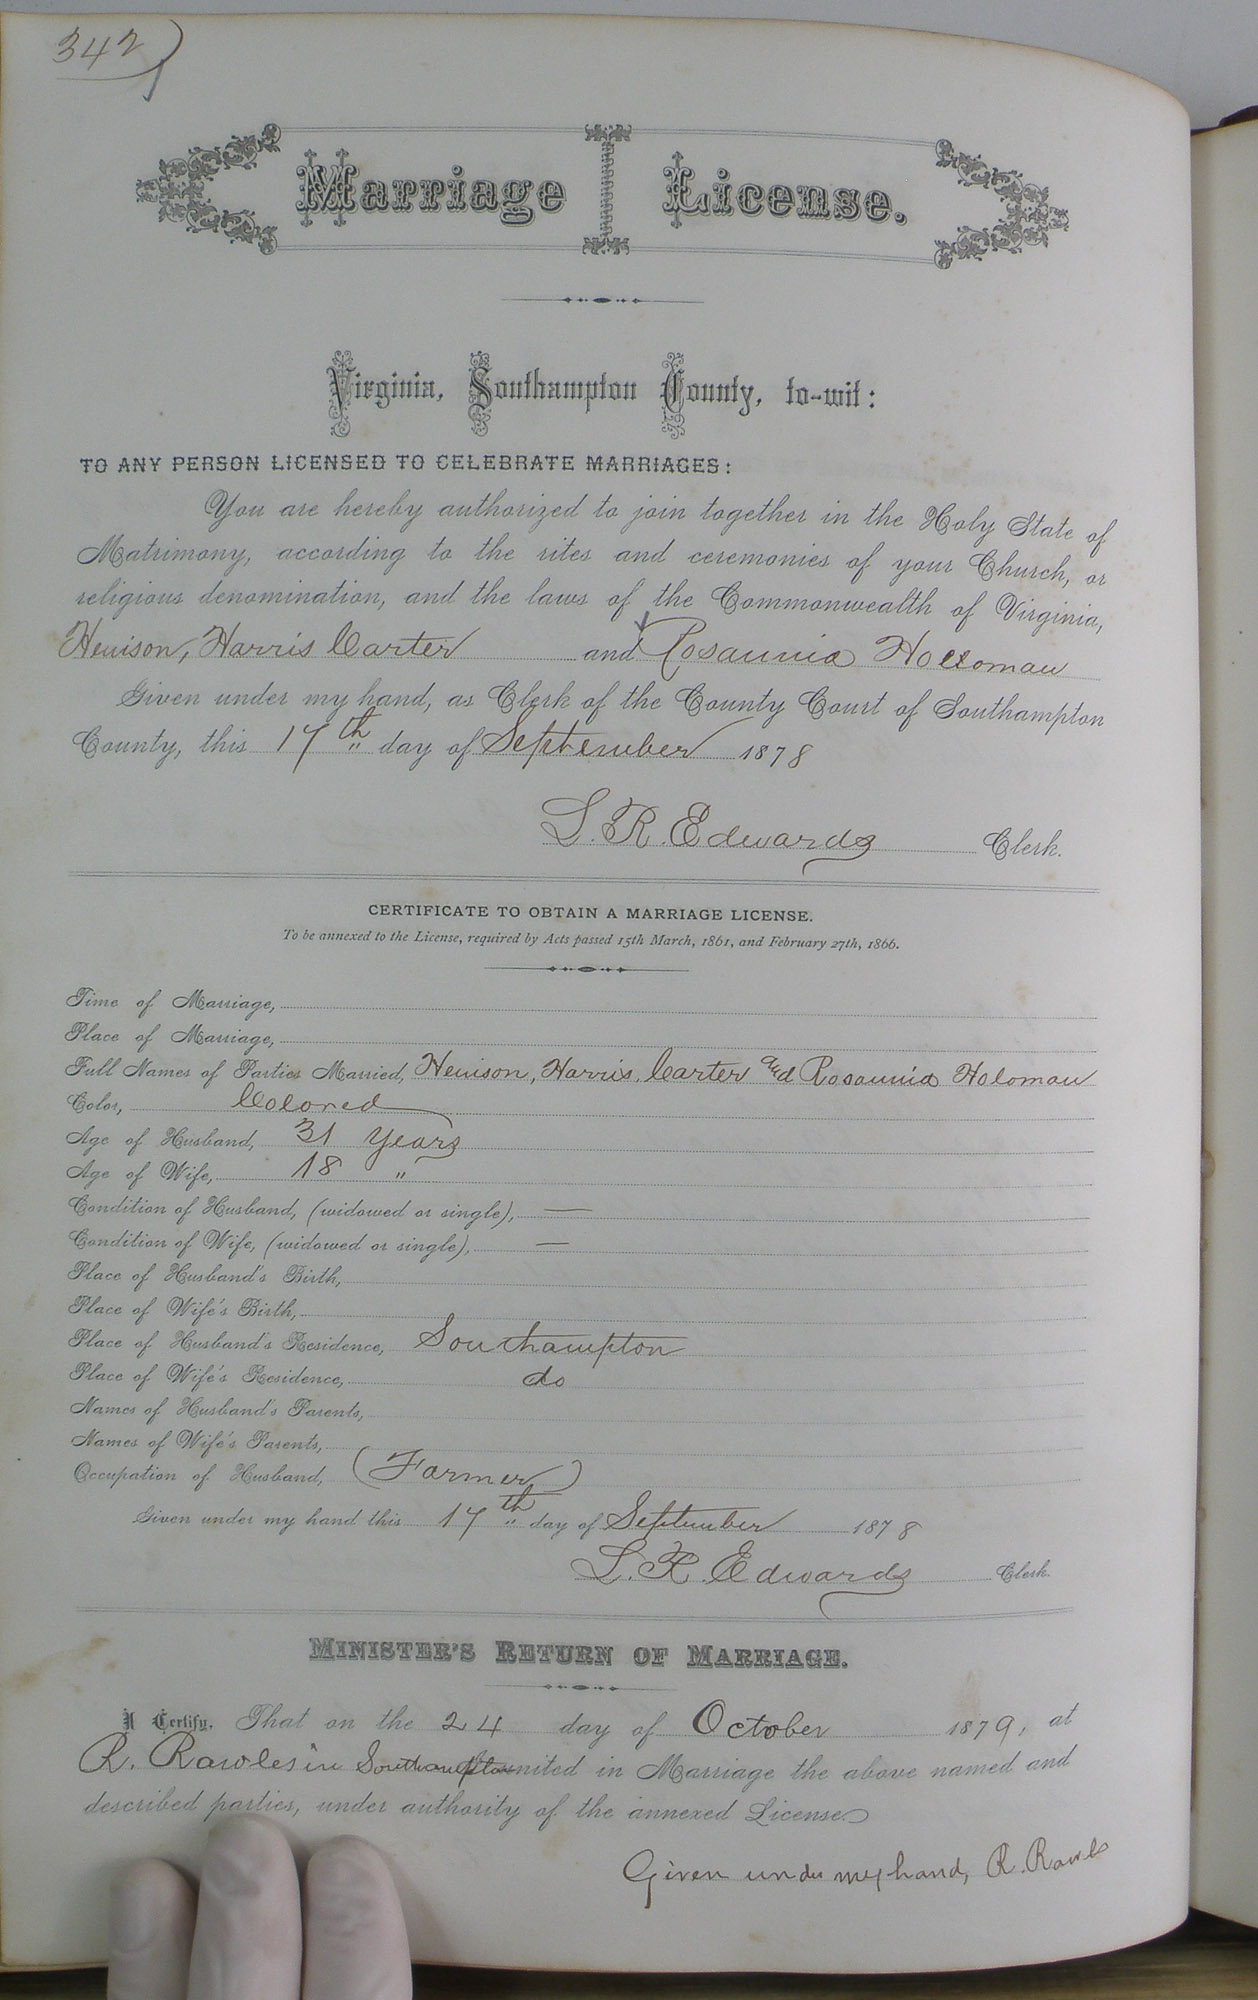 342
Marriage License.
Virginia, Southampton County, to-wit:
TO ANY PERSON LICENSED TO CELEBRATE MARRIAGES:
You are hereby authorized to join together in the Holy State of
Matrimony, according to the rites and ceremonies of your Church, or
religious denomination, and the laws of the Commonwealth of Virginia,
Henison, Harris Carter and Rosaunia Holloman
Given under my hand, as Clerk of the County Court of Southampton
County, this 17th day of September 1878
L. R. Edwards Clerk.
CERTIFICATE TO OBTAIN A MARRIAGE LICENSE.
To be annexed to the License, required by Acts passed 15th March, 1861, and February 27th, 1866.
Time of Marriage,
Place of Marriage,
Full Names of Parties Married, Henison, Harris, Carter and Rosaunia Holoman
Color, Colored
Age of Husband, 31 years
Age of Wife, 18 "
Condition of Husband, (widowed or single), —
Condition of Wife, (widowed or single), —
Place of Husband's Birth,
Place of Wife's Birth,
Place of Husband's Residence, Southampton
Place of Wife's Residence, do
Names of Husband's Parents,
Names of Wife's Parents,
Occupation of Husband, (Farmer)
Given under my hand this 17th day of September 1878
L. R. Edwards Clerk.
MINISTER'S RETURN OF MARRIAGE.
I Certify, That on the 24 day of October 1879, at
R. Rawles in Southampton united in Marriage the above named and
described parties, under authority of the annexed License.
Given under my hand, R. Rawls